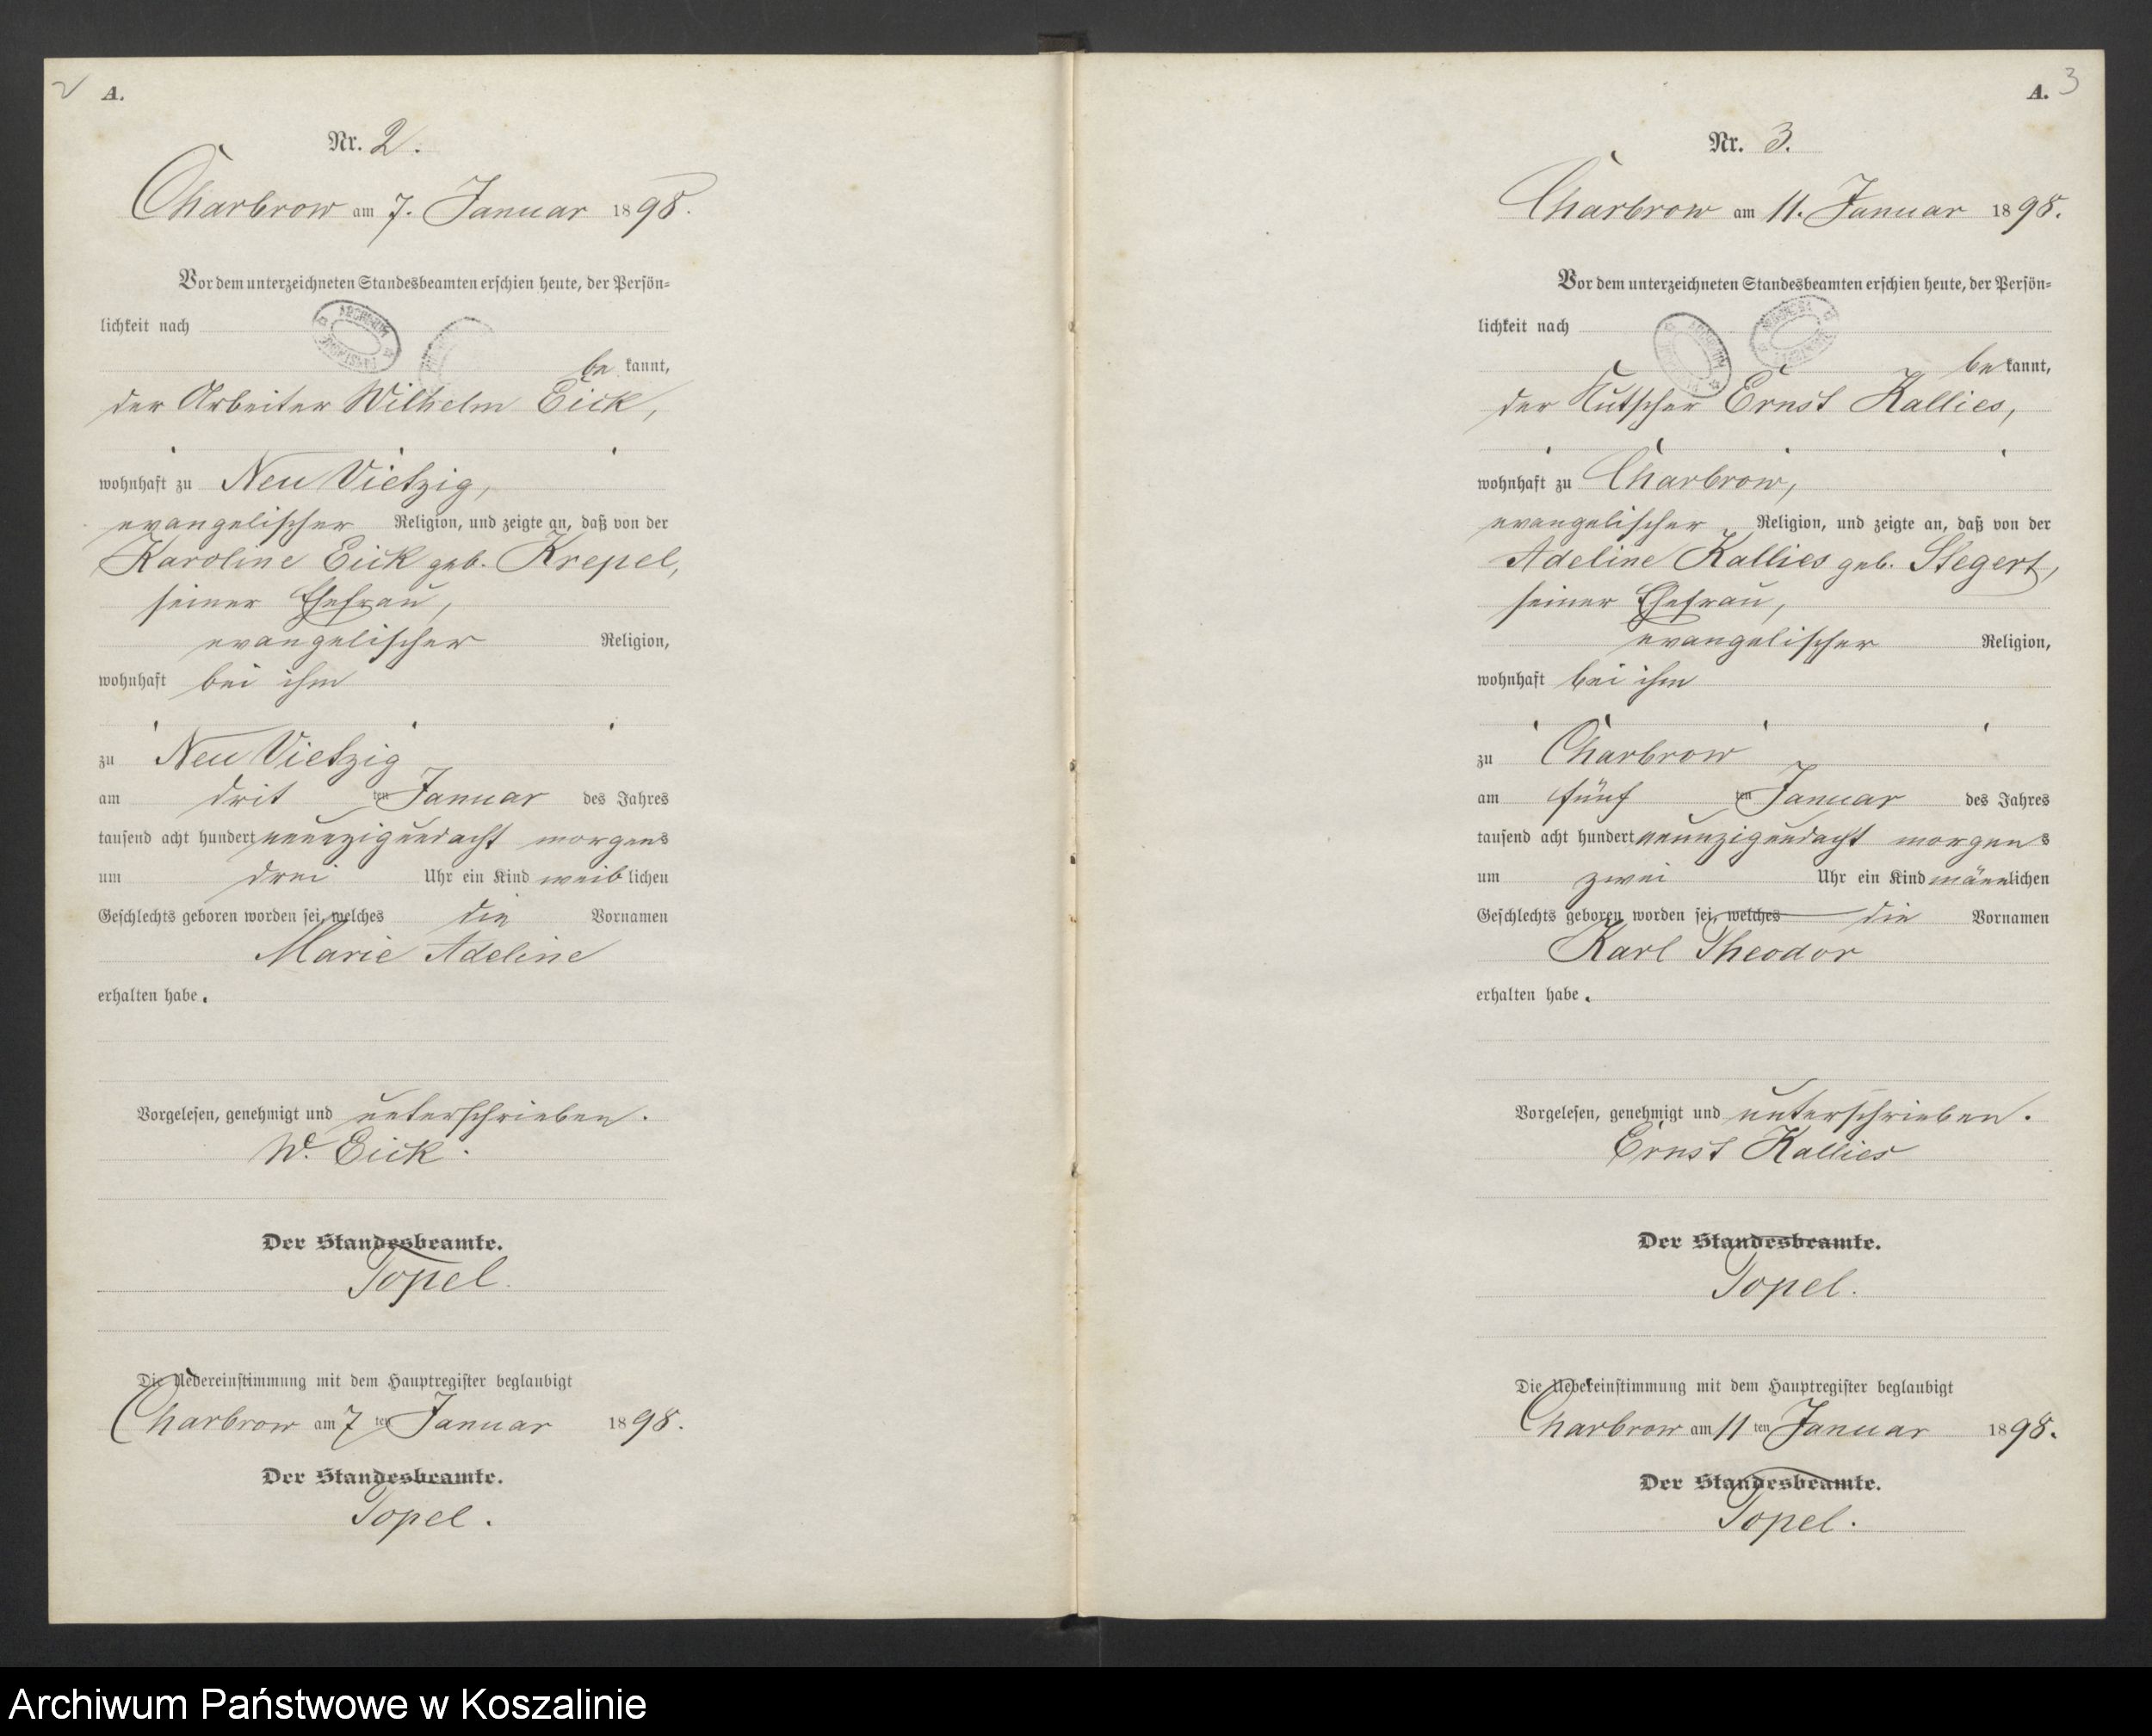 2
A.
Nr. 2.
Charbrow am 7. Januar 1898.
Vor dem unterzeichneten Standesbeamten erschien heute, der Persön-
lichkeit nach
be kannt,
der Arbeiter Wilhelm Eick,
wohnhaft zu Neu Vietzig,
evangelischer Religion, und zeigte an, daß von der
Karoline Eick geb. Krepel,
seiner Ehefrau,
evangelischer Religion,
wohnhaft bei ihm
zu Neu Vietzig
am drit ten Januar des Jahres
tausend acht hundert neunzigundacht morgens
um drei Uhr ein Kind weiblichen
Geschlechts geboren worden sei, welches die Vornamen
Marie Adeline
erhalten habe.
Vorgelesen, genehmigt und unterschrieben.
W. Eick.
Der Standesbeamte.
Topel.
Die Uebereinstimmung mit dem Hauptregister beglaubigt
Charbrow am 7 ten Januar 1898.
Der Standesbeamte.
Topel.
A. 3
Nr. 3.
Charbrow am 11. Januar 1898.
Vor dem unterzeichneten Standesbeamten erschien heute, der Persön-
lichkeit nach
be kannt,
der Kutscher Ernst Kallies,
wohnhaft zu Charbrow,
evangelischer Religion, und zeigte an, daß von der
Adeline Kallies geb. Stegert,
seiner Ehefrau,
evangelischer Religion,
wohnhaft bei ihm
zu Charbrow
am fünf ten Januar des Jahres
tausend acht hundert neunzigundacht morgens
um zwei Uhr ein Kind männlichen
Geschlechts geboren worden sei, welches die Vornamen
Karl Theodor
erhalten habe.
Vorgelesen, genehmigt und unterschrieben.
Ernst Kallies
Der Standesbeamte.
Topel.
Die Uebereinstimmung mit dem Hauptregister beglaubigt
Charbrow am 11 ten Januar 1898.
Der Standesbeamte.
Topel.
Archiwum Państwowe w Koszalinie